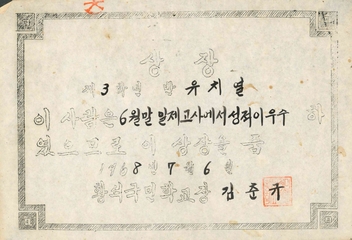 상장
제3학년 반 유치열
이 사람은 6월말 일제고사에서 성적이 우수하
였으므로 이 상장을 줌
1968년 7월 6일
국민학교장 김준규